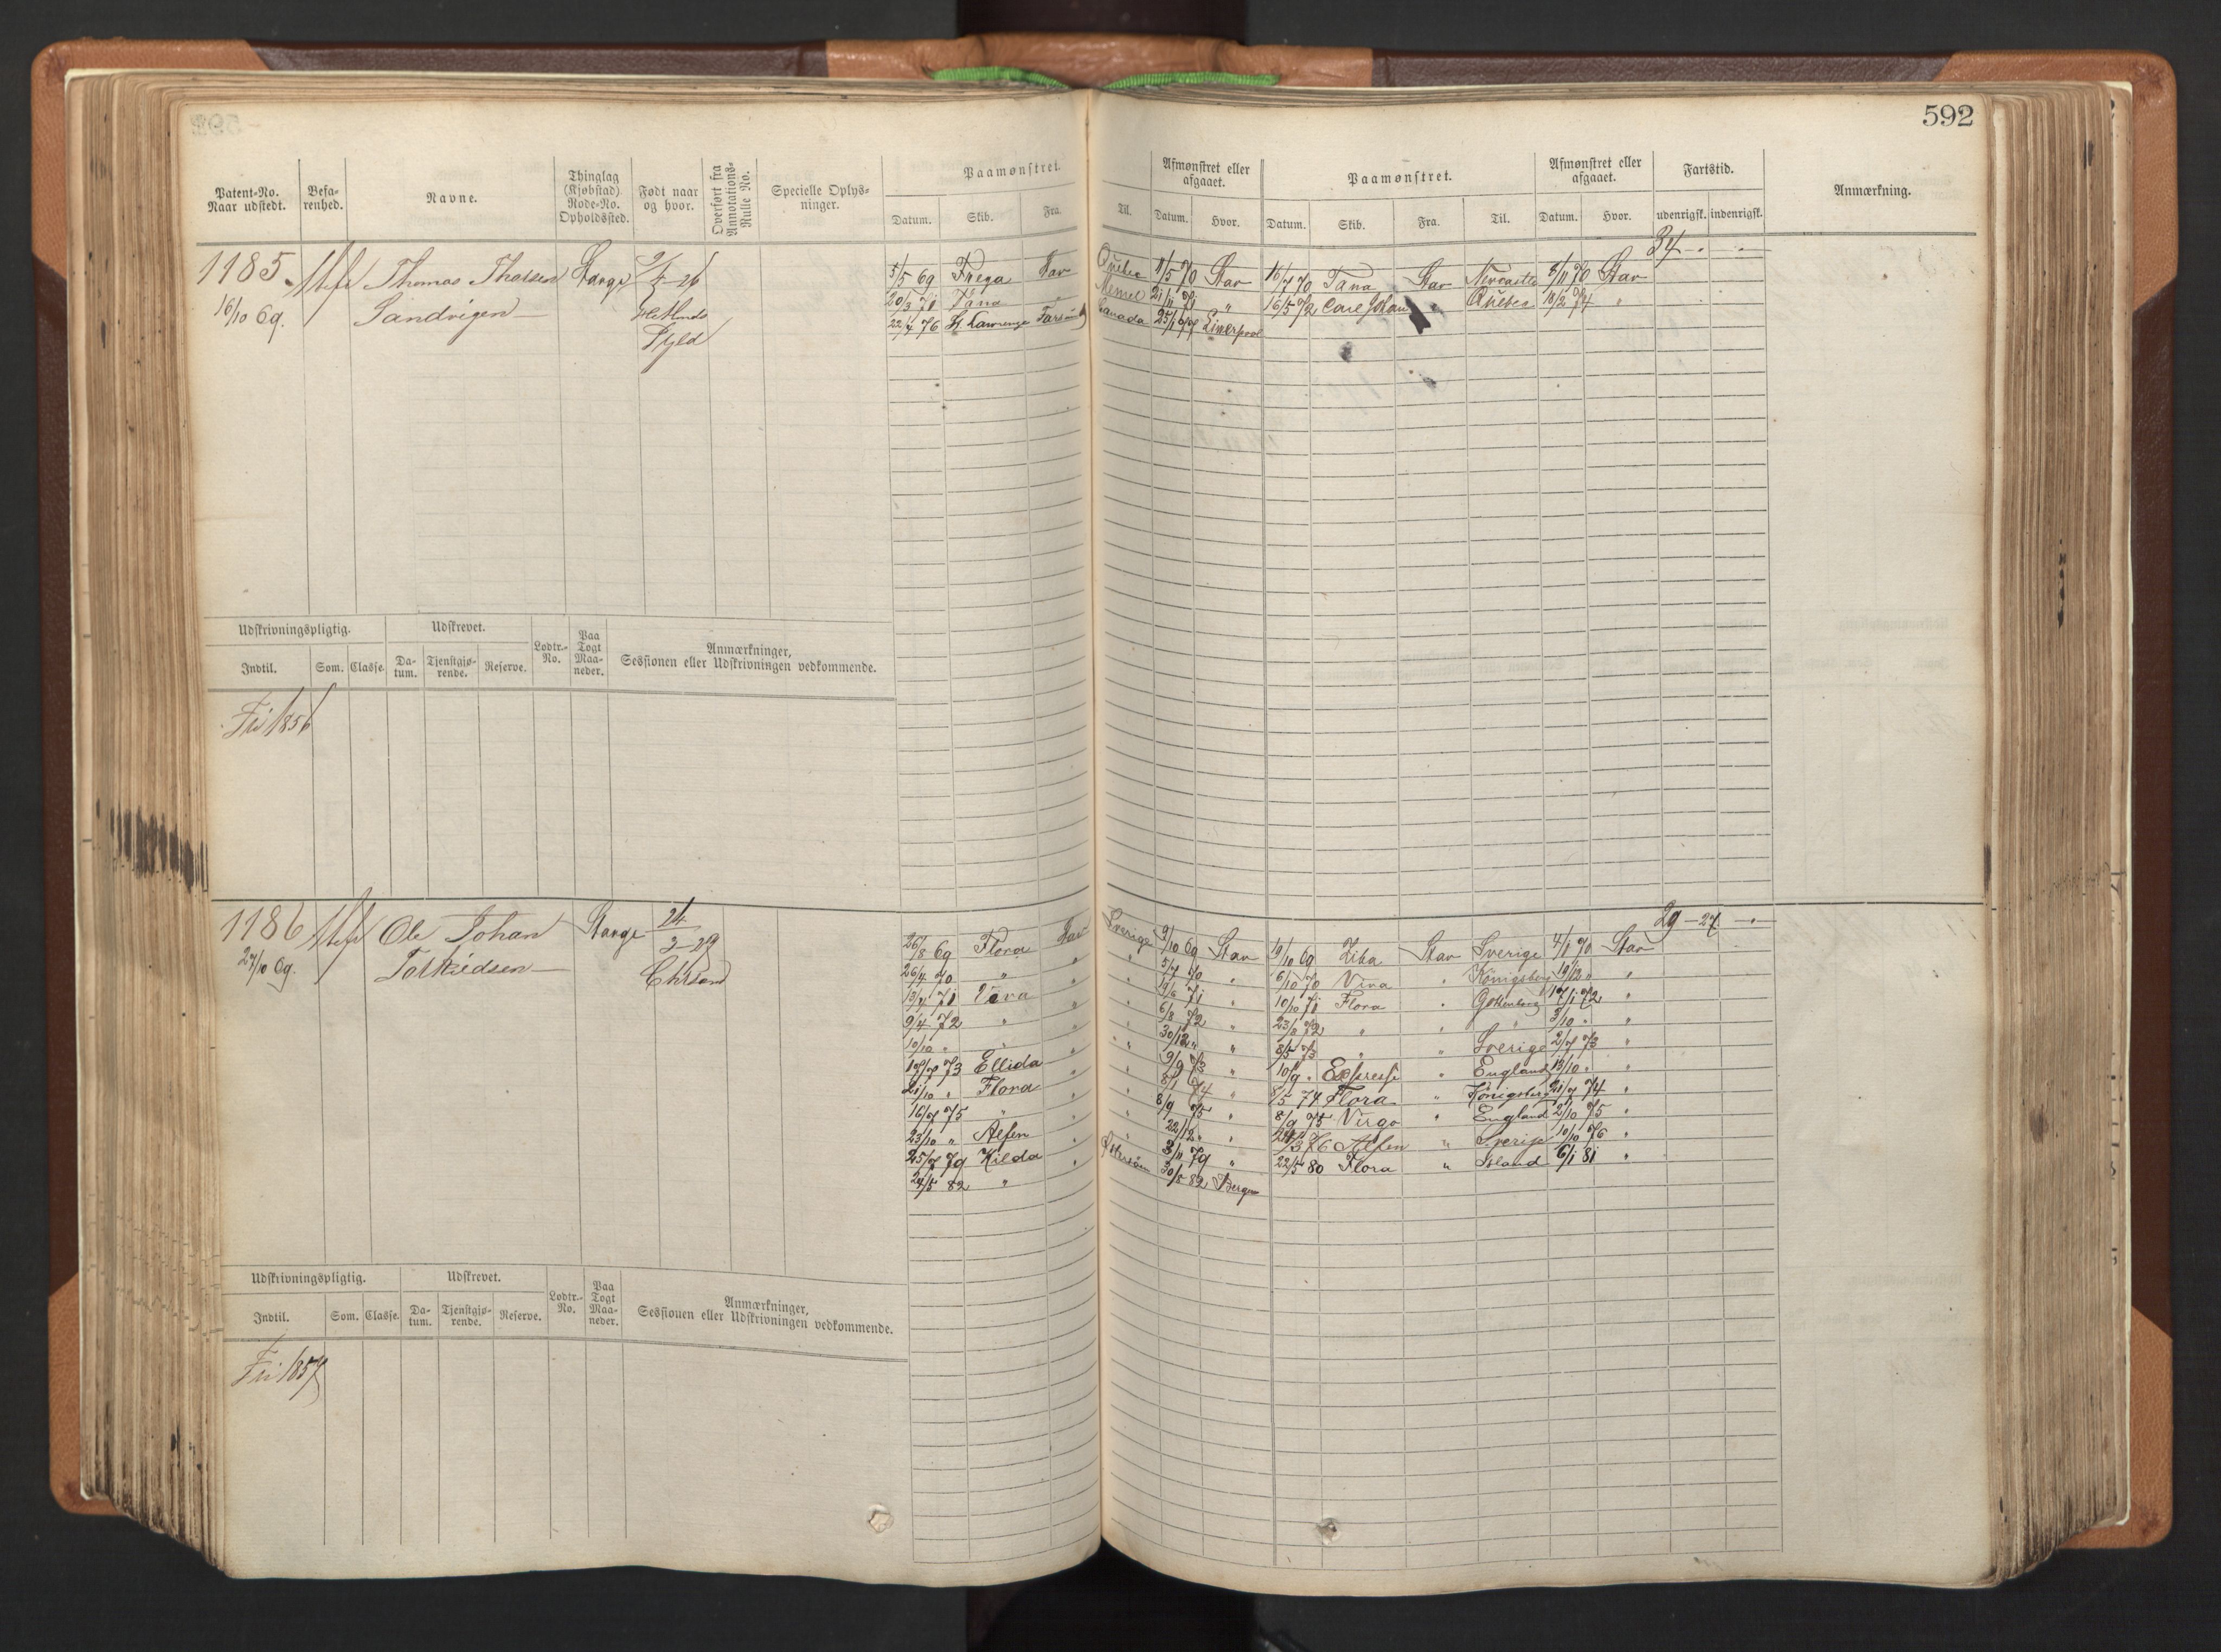 592
Patent-No. Naar udstedt.
Befarenhed.
Navne.
Thinglag (Kjøbstad) Rode-No. Opholdssted.
Født naar og hvor.
Overført fra Annotations-Rulle No.
Specielle Oplysninger.
Paamønstret.
Datum. Skib. Fra. Til.
Afmønstret eller afgaaet.
Datum. Hvor.
Paamønstret.
Datum. Skib. Fra. Til.
Afmønstret eller afgaaet.
Datum. Hvor.
Fartstid.
udenrigsk. indenrigsk.
Anmærkning.
1185
16/10 69.
Thomas Thorsen
Sandvigen
Hetlands
34
5/5 69 Freya Stav Québec 11/5 70 Stav 16/7 70 Tana Stav Newcastle 8/11 70 Stav
20/3 71 Vana Memel 21/11 71 " 16/5 72 Carl Johan " Québec 18/2 74 "
22/4 76 St. Lawrence Farsund Canada 25/1 77 Liverpool
Udskrivningspligtig.
Udskrevet.
Indtil. Som. Classe. Datum. Tjenstgjørende. Reserve.
Lodtr.-No.
Paa Togt Maaneder.
Anmærkninger, Sessionen eller Udskrivningen vedkommende.
Fri 1856
1186
27/10 69.
Ole Johan
Torkildsen
24/2-29
Chrsand
29-27
26/8 69 Flora Stav Sverige 9/10 69 Stav 19/10 69 Ziba Stav Sverige 4/1 70 Stav
26/4 70 " " " 5/7 70 " 6/10 70 Vira " Königsberg 19/12 " "
13/4 71 Vera " " 14/6 71 " 10/10 71 Flora " Gottenborg 17/1 72 "
9/4 72 " " " 6/8 72 " 23/8 72 " " " 3/10 " "
10/10 " " " " 30/12 " " 8/5 73 " " Sverige 2/7 73 "
18/7 73 Ellida " " 9/9 73 " 10/9 " Express " England 13/10 " "
21/10 " Flora " " 8/1 74 " 8/5 74 Flora " Königsberg 21/7 74 "
16/7 75 " " " 8/9 75 " 8/9 75 Virgo " England 2/10 75 "
23/10 " Alfen " " 22/12 " " 24/3 76 Alfen " Sverige 10/10 76 "
25/7 79 Kilda " 3/11 79 " 22/5 80 Flora " Island 6/1 81 "
24/5 82 " 30/8 82 Bergen
Udskrivningspligtig.
Udskrevet.
Indtil. Som. Classe. Datum. Tjenstgjørende. Reserve.
Lodtr.-No.
Paa Togt Maaneder.
Anmærkninger, Sessionen eller Udskrivningen vedkommende.
Fri 1857